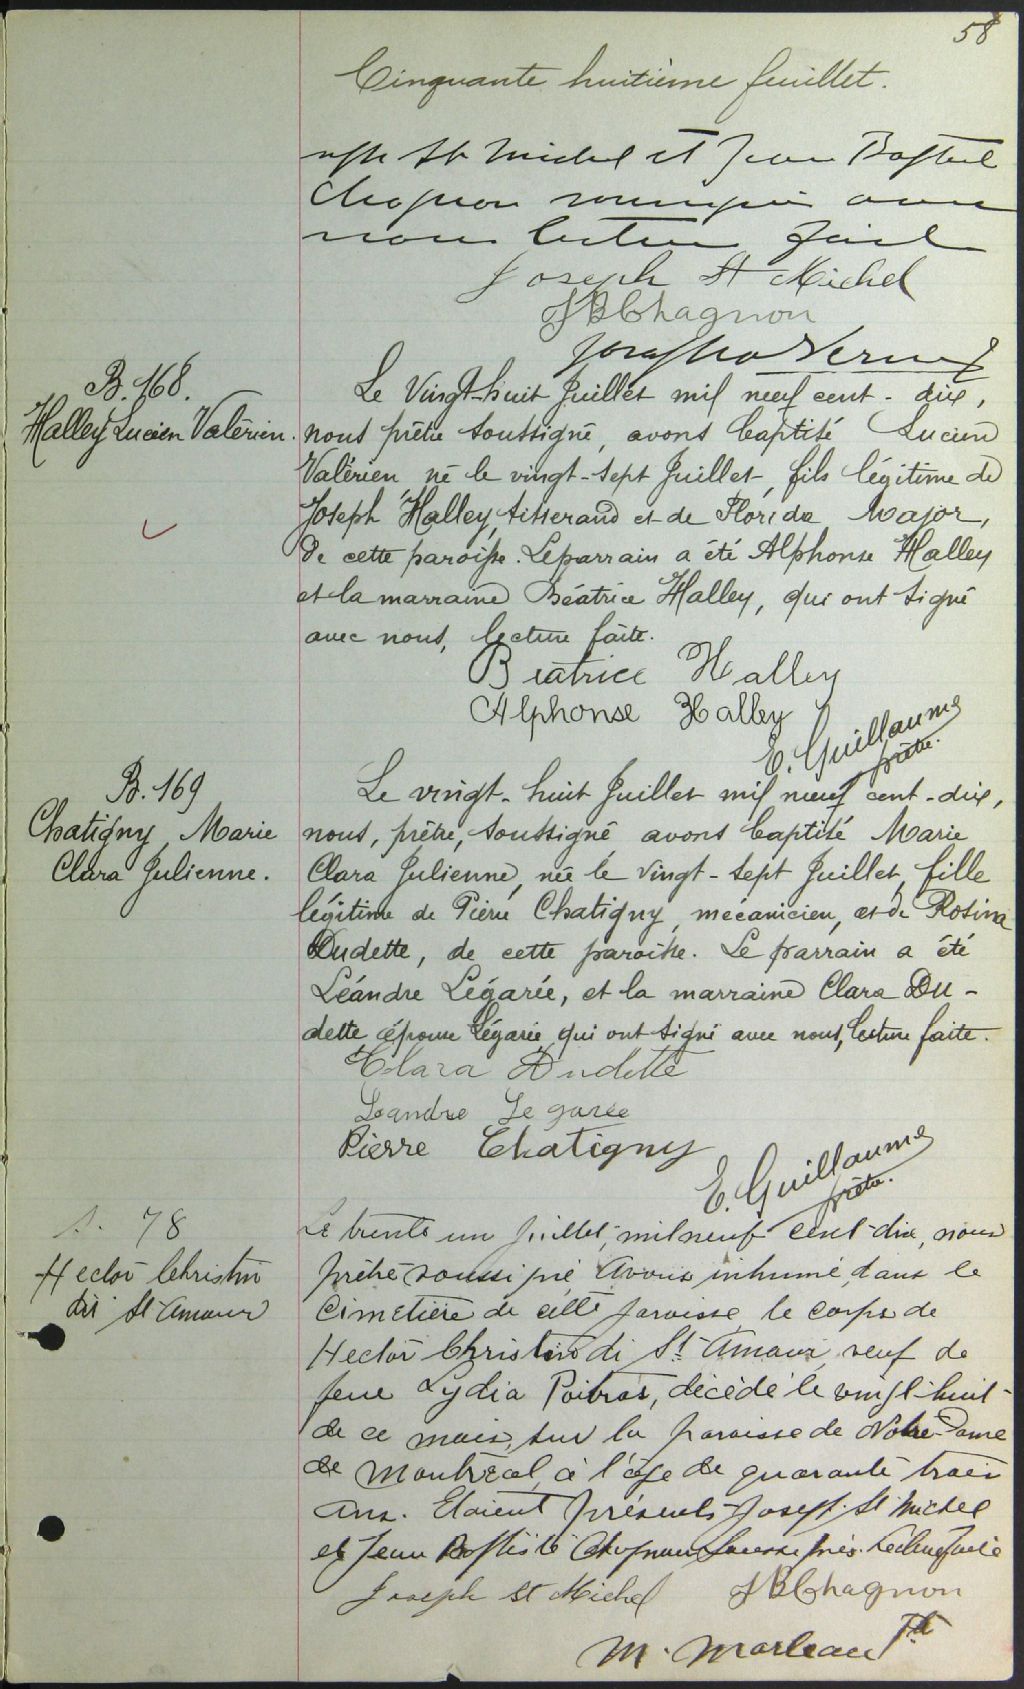 58
Cinquante huitième feuillet.
seph St Michel et Jean Baptiste
Chagnon soussignés avec
nous lecture faite
Joseph St Michel
JB Chagnon
B. 168.
Halley Lucien Valérien.
Le Vingt-huit Juillet mil neuf cent-dix,
nous prêtre soussigné, avons baptisé Lucien
Valérien, né le vingt-sept Juillet, fils légitime de
Joseph Halley, tisserand et de Florida Major,
de cette paroisse. Le parrain a été Alphonse Halley
et la marraine Béatrice Halley, qui ont signé
avec nous, lecture faite.
Beatrice Halley
Alphonse Halley
E. Guillaume
prêtre.
B. 169
Chatigny, Marie
Clara Julienne.
Le vingt-huit Juillet mil neuf cent-dix,
nous, prêtre, soussigné avons baptisé Marie
Clara Julienne, née le vingt-sept Juillet, fille
légitime de Pierre Chatigny, mécanicien, et de Rosina
Dudette, de cette paroisse. Le parrain a été
Léandre Légarée, et la marraine Clara Du-
dette, épouse Légarée, qui ont signé avec nous, lecture faite.
Clara Dudette
Leandre Legarée
Pierre Chatigny
E. Guillaume
prêtre.
S. 78
Hector Christin
dit St Amour
Le trente un juillet, mil neuf cent-dix, nous
prêtre soussigné avons inhumé dans le
cimetière de cette paroisse le corps de
Hector Christin di St Amour, veuf de
feue Lydia Poitras, décédé le vingt-huit
de ce mois, sur la paroisse de Notre-Dame
de Montréal, à l'âge de quarante trois
ans. Etaient présents Joseph St Michel
et Jean Baptiste Chagnon soussignés. Lecture faite
Joseph St Michel JB Chagnon
M. Marleau Ptr